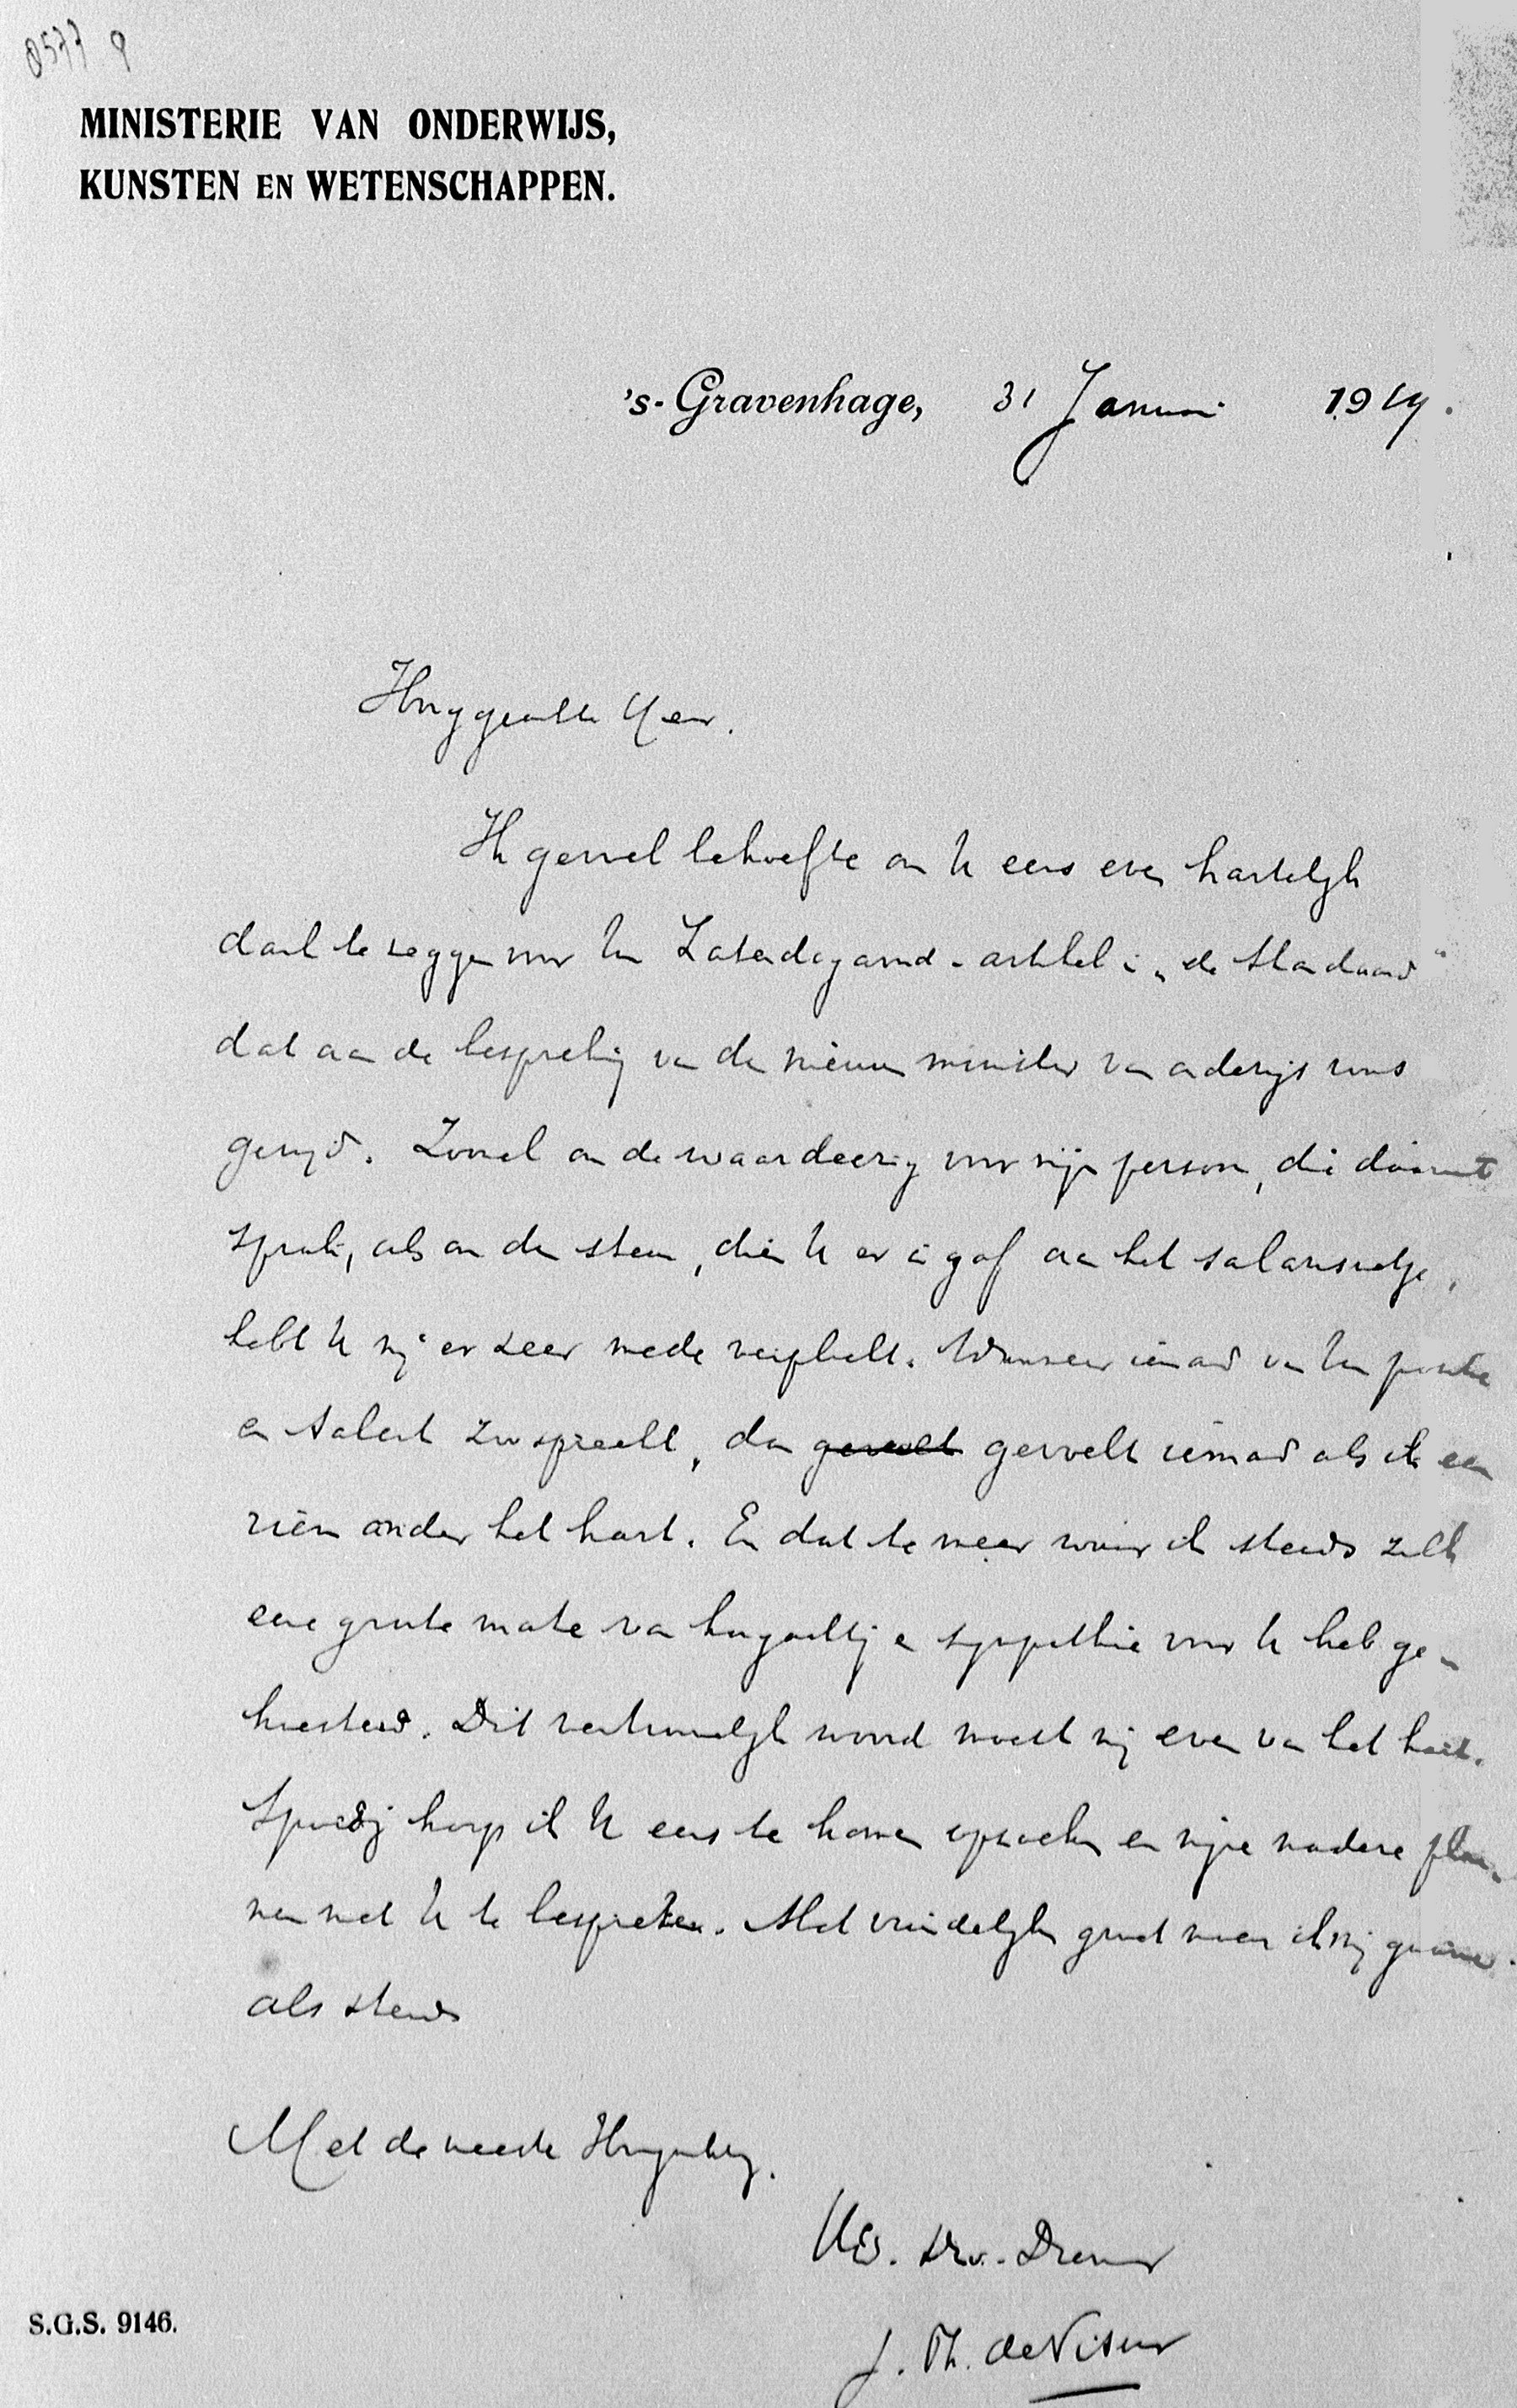 0577 9
MINISTERIE VAN ONDERWIJS,
KUNSTEN EN WETENSCHAPPEN.
's-Gravenhage, 31 Januari 1919.
Hooggeachte Heer.
Ik gevoel behoefte om U eens even hartelijk
dank te zeggen voor Uw Zaterdagavond-artikel in „de Standaard"
dat aan de bespreking van den nieuwen minister van onderwijs was
gewijd. Zoowel om de waardeering voor mijn persoon, die daaruit
sprak, als om den steun, dien U er in gaf aan het salariswetje,
hebt U mij er zeer mede verplicht. Wanneer iemand van Uw positie
en talent zoo spreekt, dan gevoelt gevoelt iemand als ik een
riem onder het hart. En dat te meer waar ik steeds zulk
eene groote mate van hoogachting en sympathie voor U heb ge-
koesterd. Dit vertrouwelijk woord moest mij even van het hart.
Spoedig hoop ik U eens te komen opzoeken en mijne nadere plan-
nen met U te bespreken. Met vriendelijken groet noem ik mij gaarne
als steeds
Met de meeste Hoogachting.
Uw. Dw. Dienaar
J. Th. de Visser
S.G.S. 9146.